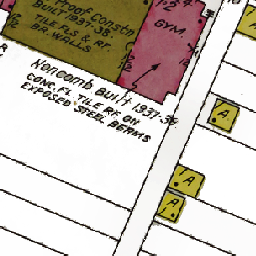 Proof Constn
BUILT 1937-38
TILE FLS & RF.
BR. WALLS
GYM.
Noncomb Built 1937-38
CONC. FL. TILE RF. ON
EXPOSED STEEL BEAMS
A.
A
A